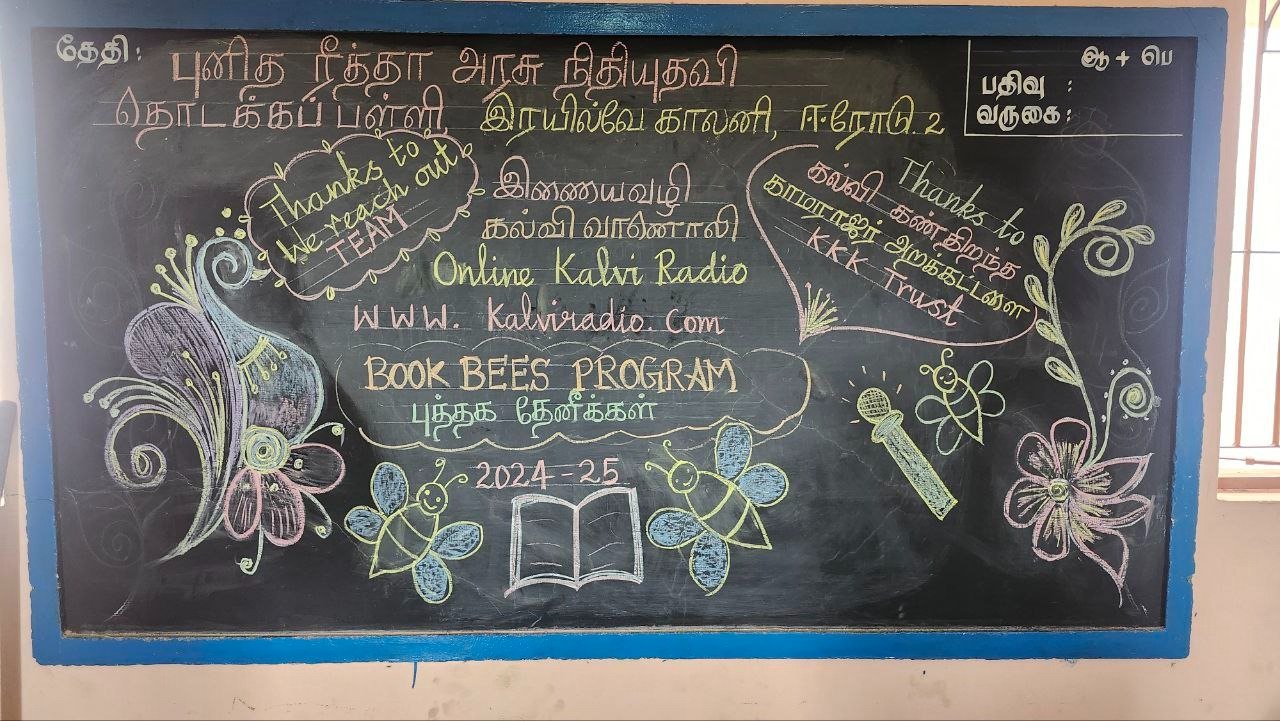 தேதி:
புனித ரீத்தா அரசு நிதியுதவி
தொடக்கப் பள்ளி இரயில்வே காலனி, ஈரோடு. 2
ஆ + பெ
பதிவு :
வருகை :
Thanks to
We reach out
TEAM
இணையவழி
கல்வி வானொலி
Online Kalvi Radio
www. Kalviradio. Com
BOOK BEES PROGRAM
புத்தக தேனீக்கள்
2024 - 25
Thanks to
கல்வி கண்திறந்த
காமராஜர் அறக்கட்டளை
KKK Trust